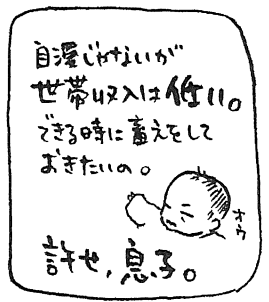 自慢じゃないが
世帯収入は低い。
できる時に蓄えをして
おきたいの。
オウ
許せ,息子。